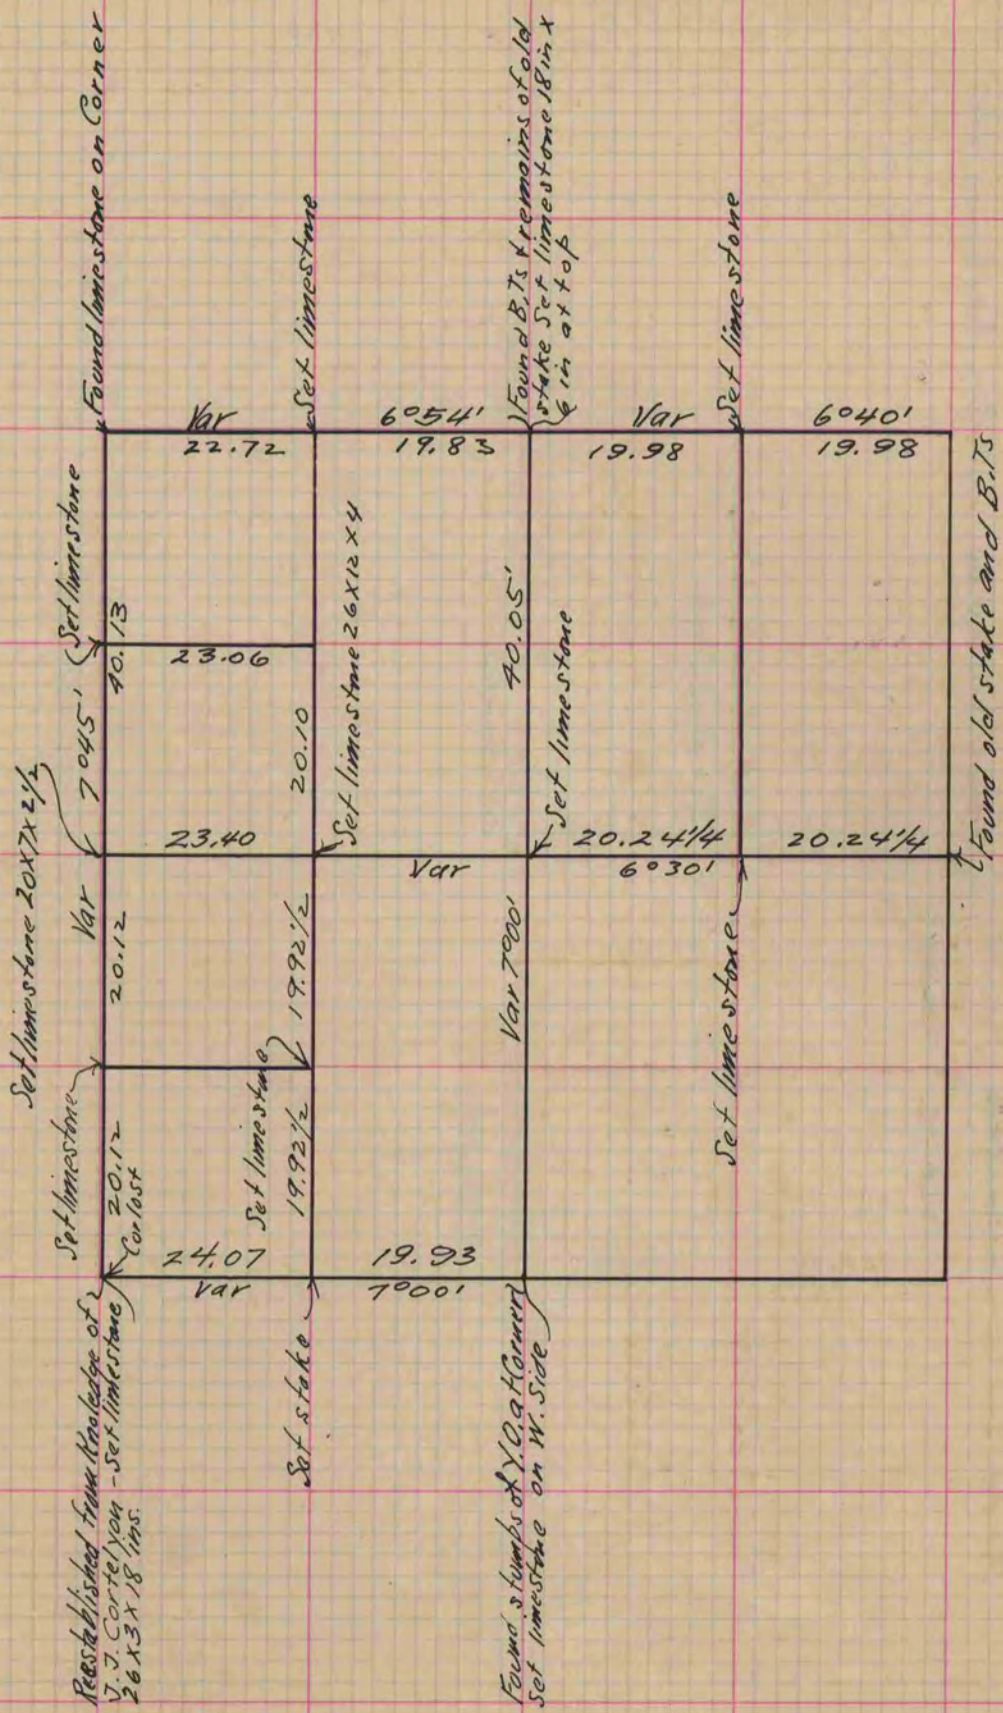 Found limestone on Corner
Set limestone
Found B.Ts & remains of old
stake Set limestone 18 in x
6 in at top
Set limestone
Var
22.72
6°54'
19.83
Var
19.98
6°40'
19.98
Found old stake and B.Ts
Set limestone
40.13
7°45'
23.06
20.10
Set limestone 26x12x4
40.05'
Set limestone
Set limestone 20x7x2½
Var
23.40
Var
20.24¼
6°30'
20.24¼
20.12
19.92½
Var 7°00'
Set limestone
Set limestone
20.12
Cor lost
Set limestone
19.92½
24.07
Var
19.93
7°00'
Reestablished from Knoledge of
J. J. Cortelyou - Set limestone
26x3x18 ins.
Set stake
Found stumps of Y.O. at Corner
Set limestone on W. Side